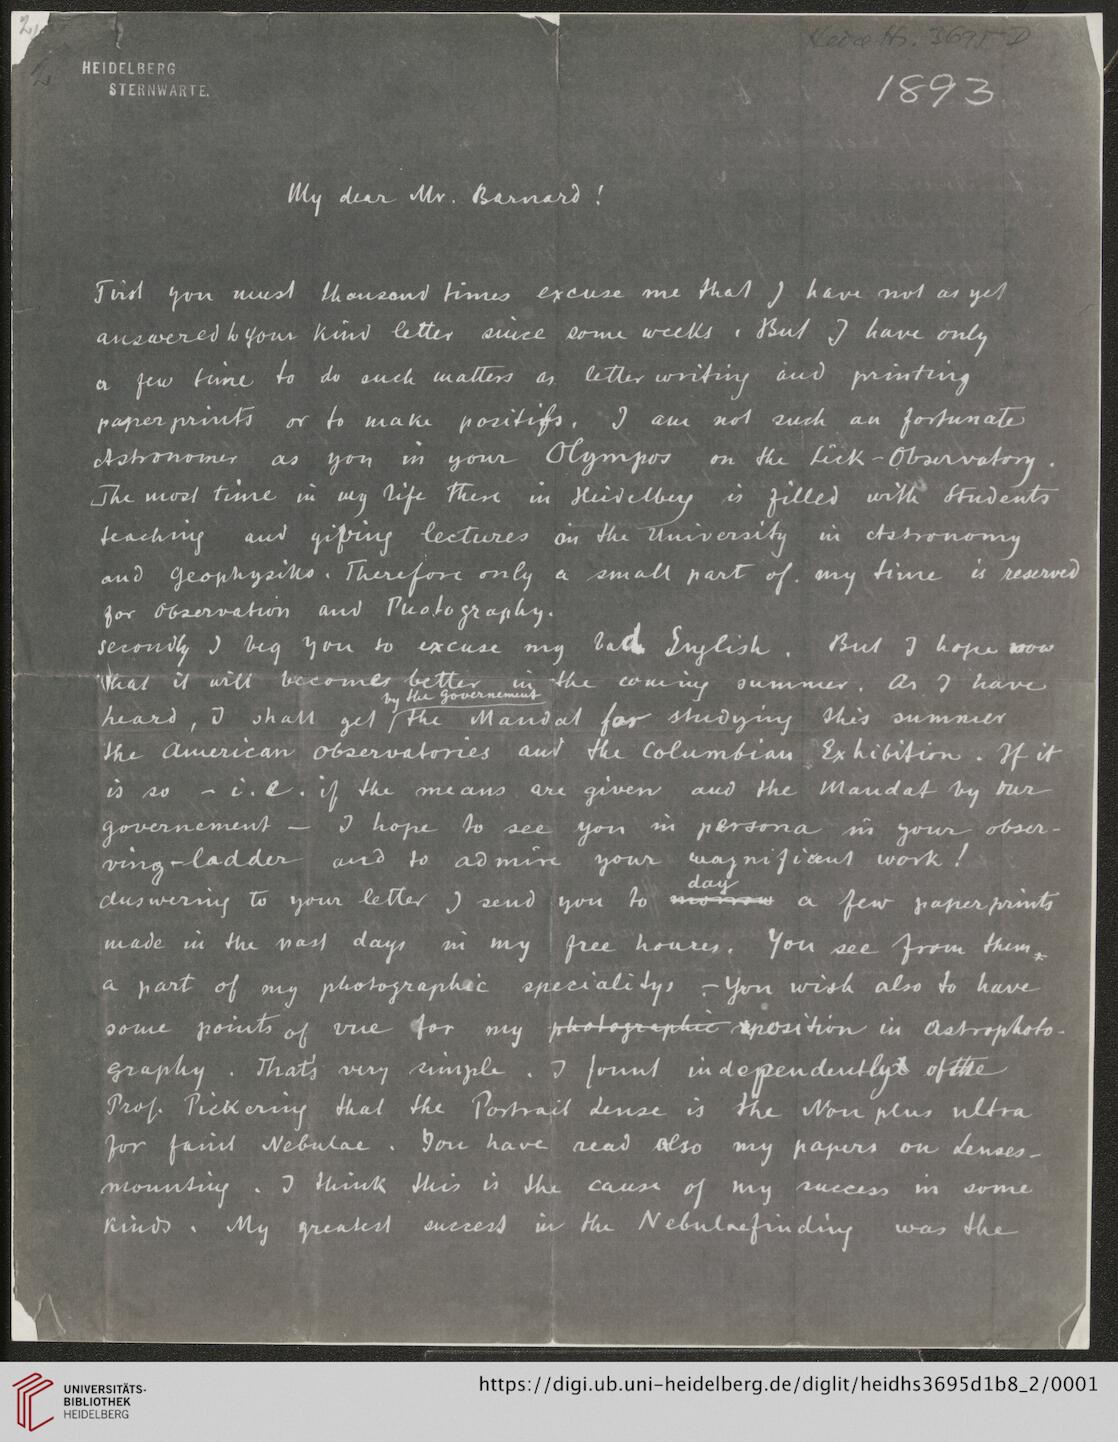 Heid. Hs. 3695 D
HEIDELBERG
STERNWARTE.
1893
My dear Mr. Barnard!
First you must thousand times excuse me that I have not as yet
answered to your kind letter since some weeks. But I have only
a few time to do such matters as letter writing and printing
paperprints or to make positifs. I am not such an fortunate
Astronomer as you in your Olympos on the Lick-Observatory.
The most time in my life there in Heidelberg is filled with Students
teaching and gifving lectures on the University in Astronomy
and Geophysiks. Therefore only a small part of my time is reserved
for Observation and Photography.
Secondly I beg you to excuse my bad English. But I hope now
that it will becomes better in the coming summer. As I have
by the Governement
heard, I shall get the Mandat for studying this summer
the American observatories and the Columbian Exhibition. If it
is so – i.e. if the means are given and the Mandat by our
governement – I hope to see you in persona in your obser-
ving-ladder and to admire your magnificent work!
day
Answering to your letter I send you to morrow a few paperprints
made in the past days in my free houres. You see from them
a part of my photographic specialitys – You wish also to have
some points of vue for my photographic xposition in Astrophoto-
graphy. That's very simple. I fount independently of the
Prof. Pickering that the Portrait Lense is the Non plus ultra
for faint Nebulae. You have read also my papers on Lenses-
mounting. I think this is the cause of my success in some
kinds. My greatest success in the Nebulaefinding was the
UNIVERSITÄTS-
BIBLIOTHEK
HEIDELBERG
https://digi.ub.uni-heidelberg.de/diglit/heidhs3695d1b8_2/0001